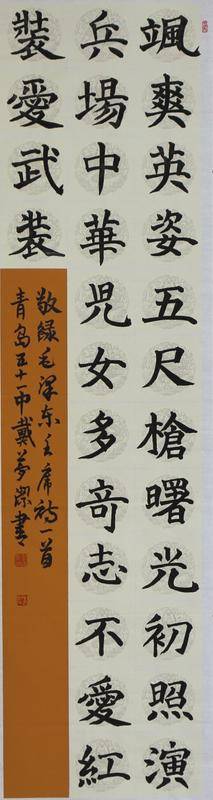 颯爽英姿五尺槍曙光初照演
兵場中華児女多奇志不愛紅
裝愛武裝
敬録毛泽东主席诗一首
青岛五十一中戴夢潔書